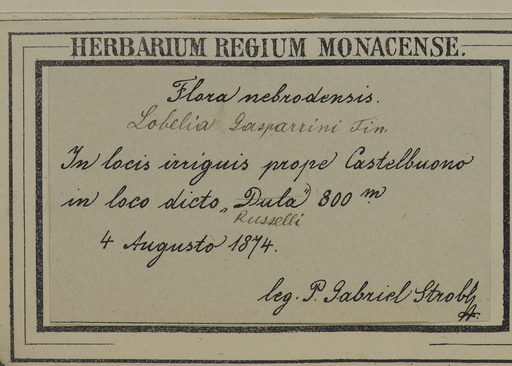 HERBARIUM REGIUM MONACENSE.
Flora nebrodensis.
Lobelia Gasparrini Tin.
In locis irriguis prope Castelbuono
in loco dicto „Dula" 800 m
Russelli
4 Augusto 1874.
leg. P. Gabriel Strobl